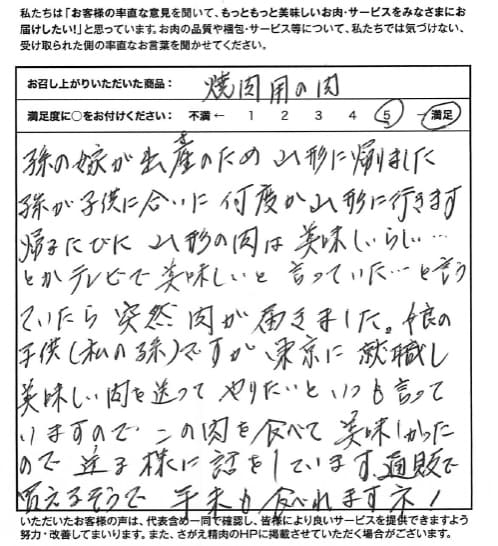 私たちは「お客様の率直な意見を聞いて、もっともっと美味しいお肉・サービスをみなさまにお
届けしたい!」と思っています。お肉の品質や梱包・サービス等について、私たちでは気づけない、
受け取られた側の率直なお言葉を聞かせてください。
お召し上がりいただいた商品： 焼肉用の肉
満足度に○をお付けください： 不満 ← 1 2 3 4 5 → 満足
孫の嫁が出産のため山形に帰りました
孫が子供に合いに何度か山形に行きます
帰るたびに山形の肉は美味しいらしい…
とかテレビで美味しいと言っていた…と言う
ていたら突然肉が届きました。娘の
子供(私の孫)ですが東京に就職し
美味しい肉を送ってやりたいといつも言って
いますので この肉を食べて美味しかった
ので 送る様に話をしています、通販で
買えるそうで 年末も食べれますネ!
いただいたお客様の声は、代表含め一同で確認し、皆様により良いサービスを提供できますよう
努力・改善してまいります。また、さがえ精肉のHPに掲載させていただく場合がございます。